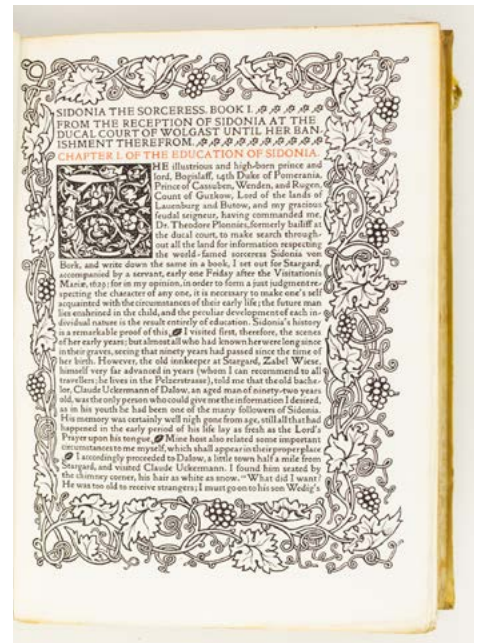 SIDONIA THE SORCERESS. BOOK I.
FROM THE RECEPTION OF SIDONIA AT THE
DUCAL COURT OF WOLGAST UNTIL HER BAN-
ISHMENT THEREFROM.
CHAPTER I. OF THE EDUCATION OF SIDONIA.
THE illustrious and high-born prince and
lord, Bogislaff, 14th Duke of Pomerania,
Prince of Cassuben, Wenden, and Rugen,
Count of Gutzkow, Lord of the lands of
Lauenburg and Butow, and my gracious
feudal seigneur, having commanded me,
Dr. Theodore Plonnies, formerly bailiff at
the ducal court, to make search through-
out all the land for information respecting
the world-famed sorceress Sidonia von
Bork, and write down the same in a book, I set out for Stargard,
accompanied by a servant, early one Friday after the Visitationis
Mariæ, 1629; for in my opinion, in order to form a just judgment re-
specting the character of any one, it is necessary to make one's self
acquainted with the circumstances of their early life; the future man
lies enshrined in the child, and the peculiar development of each in-
dividual nature is the result entirely of education. Sidonia's history
is a remarkable proof of this. I visited first, therefore, the scenes
of her early years; but almost all who had known her were long since
in their graves, seeing that ninety years had passed since the time of
her birth. However, the old innkeeper at Stargard, Zabel Wiese,
himself very far advanced in years (whom I can recommend to all
travellers; he lives in the Pelzerstrasse), told me that the old bache-
lor, Claude Uckermann of Dalow, an aged man of ninety-two years
old, was the only person who could give me the information I desired,
as in his youth he had been one of the many followers of Sidonia.
His memory was certainly well nigh gone from age, still all that had
happened in the early period of his life lay as fresh as the Lord's
Prayer upon his tongue. Mine host also related some important
circumstances to me myself, which shall appear in their proper place
I accordingly proceeded to Dalow, a little town half a mile from
Stargard, and visited Claude Uckermann. I found him seated by
the chimney corner, his hair as white as snow. "What did I want?
He was too old to receive strangers; I must go on to his son Wedig's